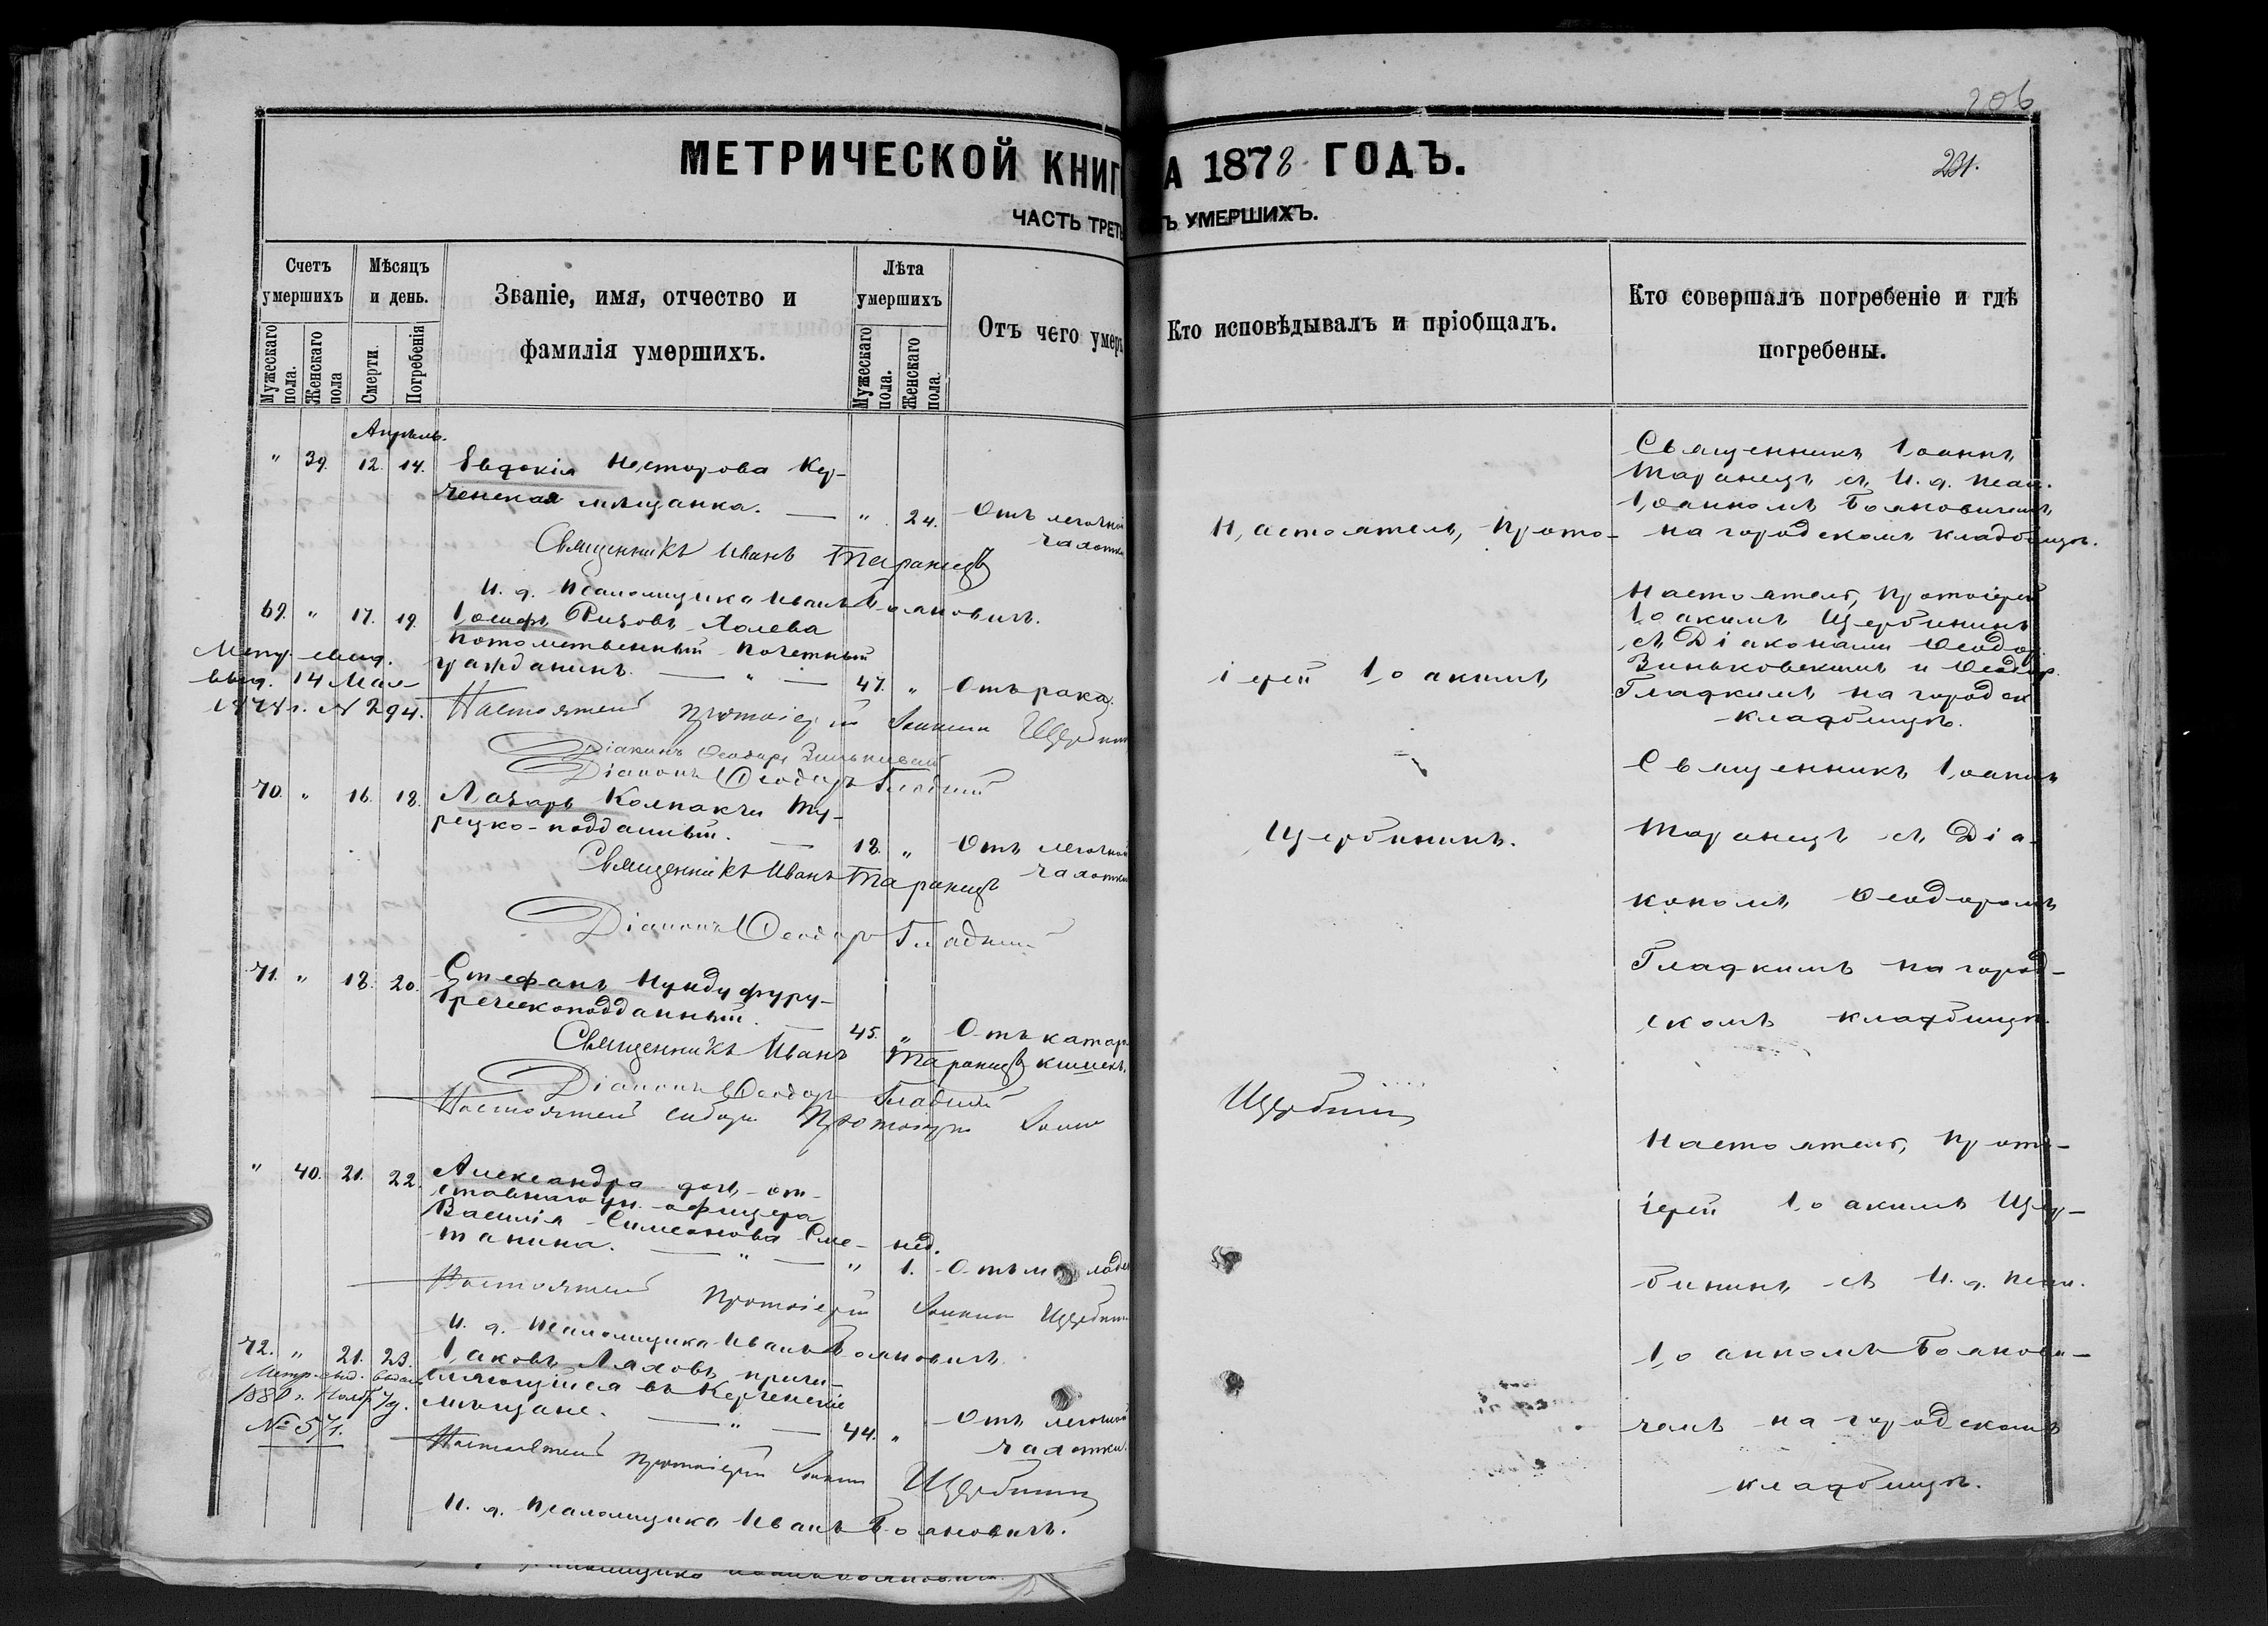 206
МЕТРИЧЕСКОЙ КНИГ
А 1878 ГОДЪ.
231.
ЧАСТЬ ТРЕТЬ
Ъ УМЕРШИХЪ.
Счетъ умершихъ
Мѣсяцъ и день.
Званіе, имя, отчество и фамилія умершихъ.
Лѣта умершихъ
Отъ чего умер
Кто исповѣдывалъ и пріобщалъ.
Кто совершалъ погребеніе и гдѣ погребены.
Мужескаго пола.
Женскаго пола
Смерти.
Погребенія
Мужескаго пола.
Женскаго пола.
Апрѣль.
" 39. 12. 14. Евдокія Несторова Кер-
ченская мѣщанка. — " 24. Отъ легочной
чахотки
Священникъ Иванъ Таранецъ
И. д. Псаломщика Иванъ Бояновичъ.
69. " 17. 19. Іосифъ Ризовъ Холева
потомственный почетный
гражданинъ. — " — 47. " Отъ рака.
Метр. свид.
выд. 14 Мая
1878 г. № 294.
Настоятель протоіерей Іоакимъ Щербин
Діаконъ Ѳеодоръ Зиньковскій
Діаконъ Ѳеодоръ Гладкій
70. " 16. 18. Лазарь Колпакчи Ту-
рецко-подданный. — 18. " Отъ легочной
чахотки
Священникъ Иванъ Таранецъ
Діаконъ Ѳеодоръ Гладкій
71. " 18. 20. Стефанъ Кундуфуру-
Греческоподданный. — 45. " Отъ катар.
кишекъ.
Священникъ Иванъ Таранецъ
Діаконъ Ѳеодоръ Гладкій
Настоятель собора Протоіерей Іоаки
" 40. 21. 22. Александра дочь от-
ставнаго ун. офицера
Василія Симеонова Сме-
танина. — " — " нед. 1. Отъ младе
Настоятель Протоіерей Іоакимъ Щербин
И. д. Псаломщика Иванъ Бояновичъ
72. " 21. 23. Іаковъ Ляховъ, причи-
сляющійся въ Керченскіе
мѣщане. — " — 44. " Отъ легочной
чахотки.
Метр. свид. выдан
1880 г. Ноябр.
№ 571.
Настоятель протоіерей Іоакимъ Щербининъ
И. д. Псаломщика Иванъ Бояновичъ.
Настоятель, Прото-
іерей Іоакимъ
Щербининъ.
Щербининъ
Священникъ Іоаннъ
Таранецъ съ И. д. псал.
Іоанномъ Бояновичемъ
на городскомъ кладбищѣ.
Настоятель, протоіерей
Іоакимъ Щербининъ
съ Діаконами Ѳеодор.
Зиньковскимъ и Ѳеодор.
Гладкимъ на городск
кладбищѣ.
Священникъ Іоаннъ
Таранецъ съ Діа-
кономъ Ѳеодоромъ
Гладкимъ на город-
скомъ кладбищѣ.
Настоятель, прото-
іерей Іоакимъ Щер-
бининъ съ И. д. псал.
Іоанномъ Боянови-
чемъ на городскомъ
кладбищѣ.